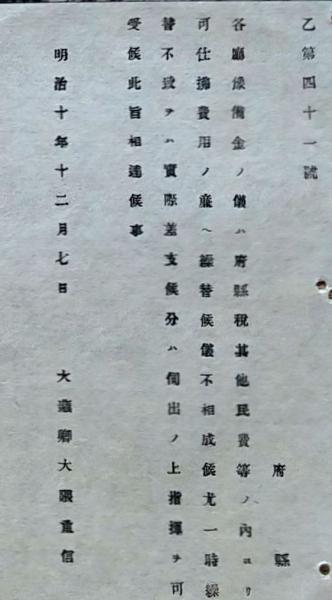 乙第四十一號
府縣
各廳豫備金ノ儀ハ府縣税其他民費等ノ內ヨリ
可仕擴費用ノ廉ヘ繰替候儀不相成候尤一時繰
替不致ヲハ實際差支候分ハ伺出ノ上指揮ヲ可
受候此旨相達候事
明治十年十二月七日 大藏卿大隈重信